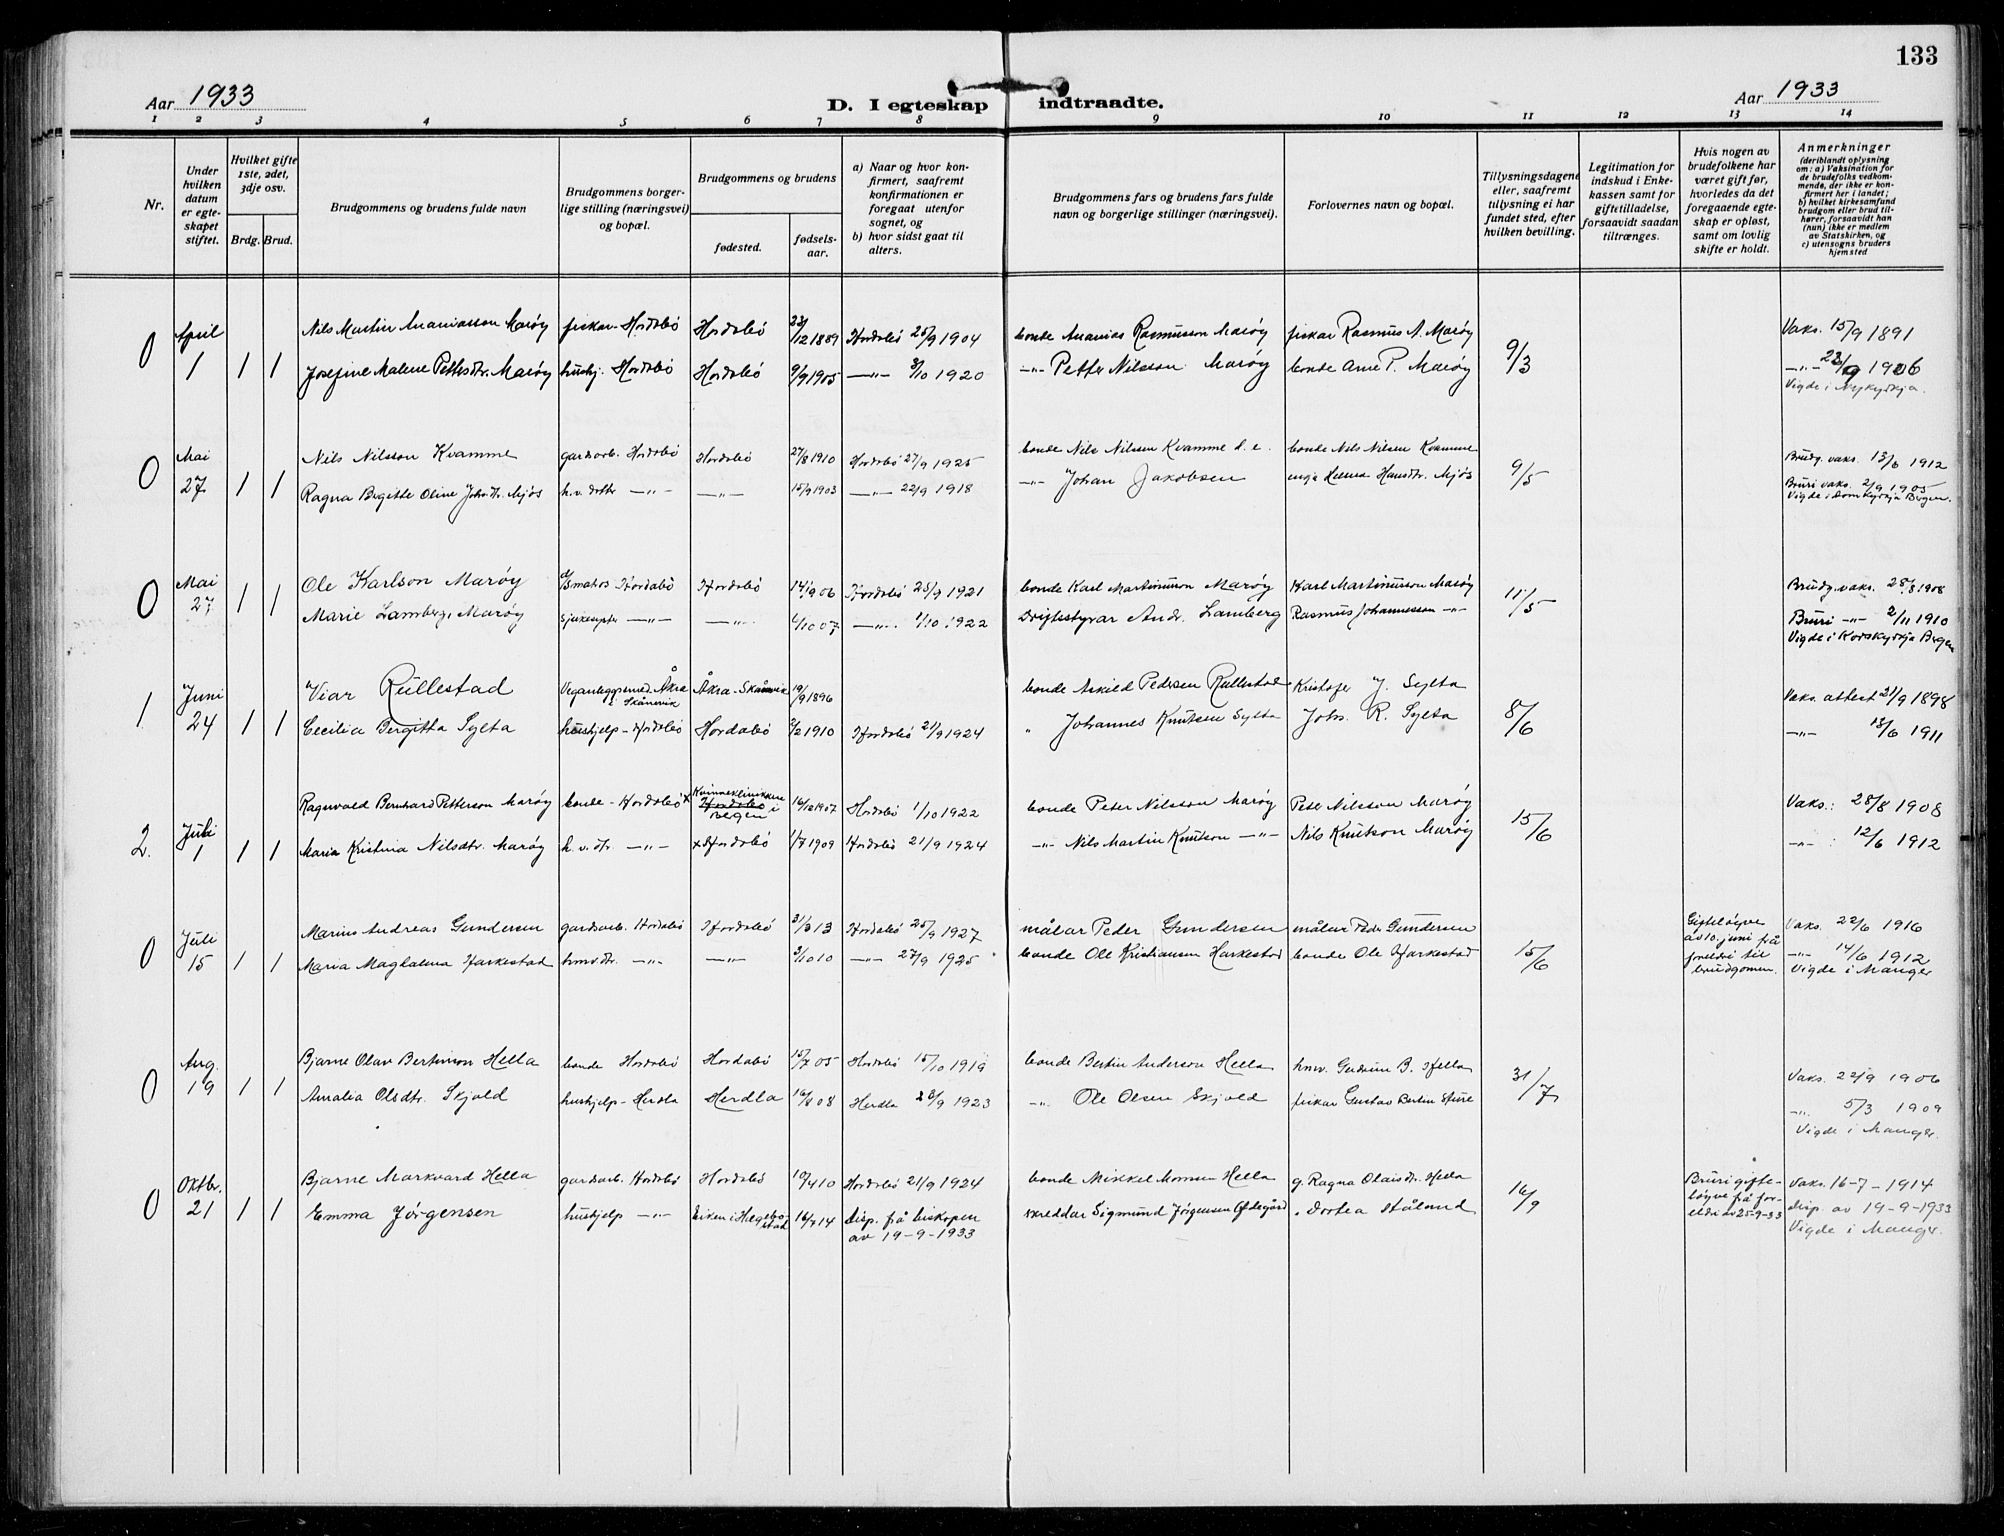 133
Aar 1933
D. I egteskap indtraadte.
Aar 1933
1 2 3 4 5 6 7 8 9 10 11 12 13 14
Nr.
Under hvilken datum er egteskapet stiftet.
Hvilket gifte 1ste, 2det, 3dje osv.
Brdg. Brud.
Brudgommens og brudens fulde navn
Brudgommens borgerlige stilling (næringsvei) og bopæl.
Brudgommens og brudens
fødested.
fødselsaar.
a) Naar og hvor konfirmert, saafremt konfirmationen er foregaat utenfor sognet, og
b) hvor sidst gaat til alters.
Brudgommens fars og brudens fars fulde navn og borgerlige stillinger (næringsvei).
Forlovernes navn og bopæl.
Tillysningsdagene eller, saafremt tillysning ei har fundet sted, efter hvilken bevilling.
Legitimation for indskud i Enkekassen samt for giftetilladelse, forsaavidt saadan tiltrænges.
Hvis nogen av brudefolkene har været gift før, hvorledes da det foregaaende egteskap er opløst, samt om lovlig skifte er holdt.
Anmerkninger
(deriblandt oplysning om: a) Vaksination for de brudefolks vedkommende, der ikke er konfirmert her i landet; b) hvilket kirkesamfund brudgom eller brud tilhører, forsaavidt han (hun) ikke er medlem av Statskirken, og c) utensogns bruders hjemsted
0 April Nils Martin Ananiasson Marøy fiskar - Hordabö Hordabö 23/12 1889 Hordabö 25/9 1904 bonde Ananias Rasmusson Marøy fiskar Rasmus A. Marøy 9/3 Vaks. 15/9 1891
1 1 1 Josefine Malene Pettersdtr. Marøy hushj. Hordabö Hordabö 9/9 1905 —"— 3/10 1920 —"— Petter Nilsson Marøy bonde Arne P. Marøy —"— 23/9 1906
Vigde i Nykyrkja.
0 Mai Nils Nilsson Kvamme gardsarb. Hordabö Hordabö 27/8 1910 Hordabö 27/9 1925 bonde Nils Nilsen Kvamme d. e. bonde Nils Nilsen Kvamme 9/5 Brudg. vaks. 13/6 1912
27 1 1 Ragna Birgitte Oline Johsdtr. Mjös h.v. dotter —"— —"— 15/9 1903 —"— 22/9 1918 —"— Johan Jakobsen Hansdtr. Mjös Bruri vaks. 2/9 1905
Vigde i Domkyrkja Bergen.
0 Mai Ole Karlson Marøy matros Hordabö Hordabö 14/1 1906 Hordabö 25/9 1921 bonde Karl Martinusson Marøy Karl Martinusson Marøy 11/5 Brudg. vaks. 28/8 1908
27 1 1 Marie Lamberg, Marøy sjukesyster —"— —"— 4/10 07 —"— 1/10 1922 Driftsstyrar Andr. Lamberg Rasmus Johannesson —"— Bruri —"— 2/11 1910
Vigde i Korskyrkja Bergen
1 Juni Viar Rullestad Veganleggsmed. Åkra i Skånevik Åkra - Skånevik 19/9 1896 bonde Askild Pedersen Rullestad Kristofer J. Sylta 8/6 Vaks. attest 21/9 1898
24 1 1 Cecilia Bergitta Sylta hushjelp - Hordabö Hordabö 2/2 1910 Hordabö 21/9 1924 " Johannes Knutsen Sylta Johs. R. Sylta —"— 13/6 1911
2. Juli Ragnvald Bernhard Petterson Marøy bonde - Hordabö x Kvinneklinikken i Bergen 16/12 1907 Hordabö 1/10 1922 bonde Peter Nilsson Marøy Peter Nilsson Marøy 15/6 Vaks.: 28/8 1908
1 1 1 Maria Kristina Nilsdtr. Marøy h.v. dtr. —"— x Hordabö 1/7 1909 Hordabö 21/9 1924 —"— Nils Martin Knutson —"— Nils Knutson Marøy —"— : 12/6 1912
0 Juli Marius Andreas Gundersen gardsarb. Hordabö Hordabö 31/3 13 Hordabö 25/9 1927 målar Peder Gundersen målar Peder Gundersen 15/6 Gifteløyve av 10. juni frå foreldri til brudgomen. Vaks. 22/6 1916
15 1 1 Maria Magdalena Harkestad hmv. dtr. —"— —"— 3/10 10 —"— 27/9 1925 bonde Ole Kristiansen Harkestad bonde Ole Harkestad —"— 14/6 1912
Vigde i Manger
0 Aug. Bjarne Olav Bertinson Hella bonde Hordabö Hordabö 15/7 05 Hordabö 15/10 1919 bonde Bertin Anderson Hella hmv. B. Hella 31/7 Vaks. 22/9 1906
19 1 1 Amalia Olsdtr. Skjold hushjelp - Herdla Herdla 08 Herdla 23/9 1923 —"— Ole Olsen Skjold fiskar Gustav Bertin Sture —"— 5/3 1909
Vigde i Manger.
0 Oktbr. Bjarne Markvard Hella gardsarb. Hordabö Hordabö 10/4 10 Hordabö 21/9 1924 bonde Mikkel Monsen Hella g. Ragna Olaisdtr. Hella 16/9 Bruri gifteløyve frå foreldri av 25-9-33 Vaks. 16-7-1914
21 1 1 Emma Jörgensen hushjelp —"— Eiken i Hægebostad 16/7 14 Disp. frå biskopen av 19-9-1933 skreddar Sigmund Jörgensen Ødegård " Dortea Ståland disp. av 19-9-1933
Vigde i Manger.